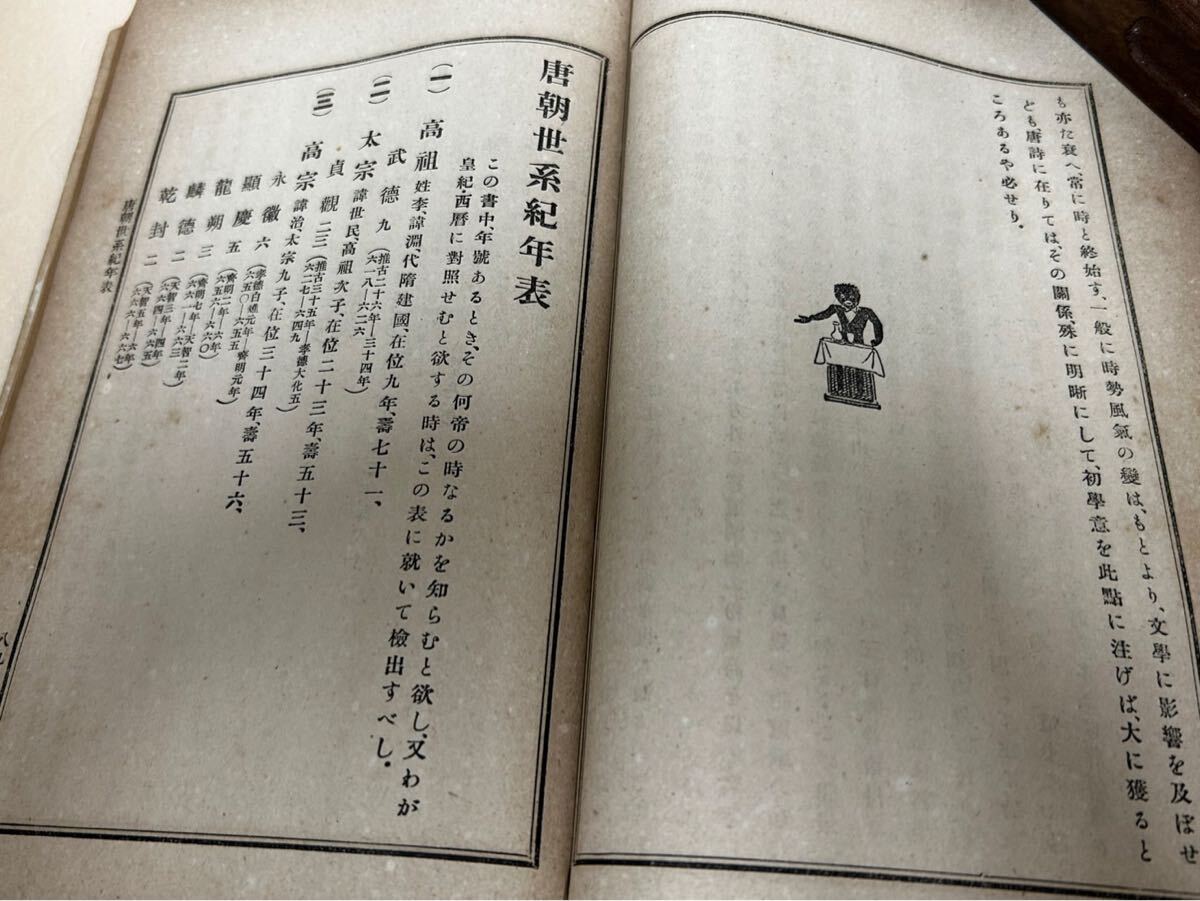 も亦た衰へ、常に時と終始す、一般に時勢風氣の變は、もとより、文學に影響を及ぼせ
ども、唐詩に在りては、その關係、殊に明晰にして、初學意を此點に注げば、大に獲ると
ころあるや必せり。
唐朝世系紀年表
この書中、年號あるとき、その何帝の時なるかを知らむと欲し、又わが
皇紀・西曆に對照せむと欲する時は、この表に就いて檢出すべし。
（一）高祖 姓李、諱淵、代隋建國、在位九年、壽七十一、
武德 九（推古二十六年―三十四年）（六一八―六二六）
（二）太宗 諱世民、高祖次子、在位二十三年、壽五十三、
貞觀 二三（推古三十五年―孝德大化五）（六二七―六四九）
（三）高宗 諱治、太宗九子、在位三十四年、壽五十六、
永徽 六（孝德白雉元年―齊明元年）（六五〇―六五五）
顯慶 五（齊明二年―六年）（六五六―六六〇）
龍朔 三（齊明七年―天智二年）（六六一―六六三）
麟德 二（天智三年―四年）（六六四―六六五）
乾封 二（天智五年―六年）（六六六―六六七）
唐朝世系紀年表